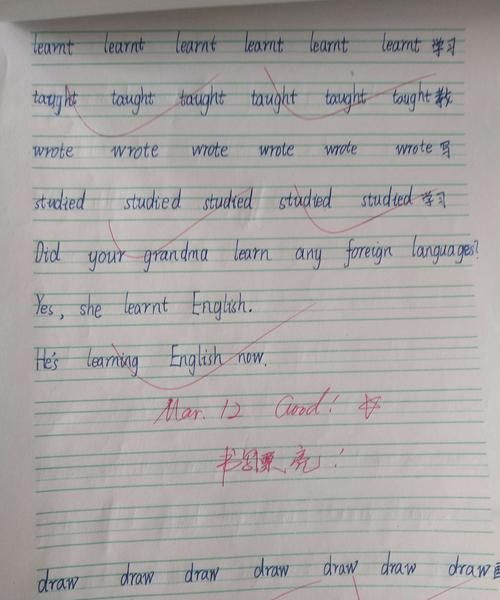 learnt learnt learnt learnt learnt learnt 学习
taught taught taught taught taught taught 教
wrote wrote wrote wrote wrote wrote 写
studied studied studied studied studied 学习
Did your grandma learn any foreign languages?
Yes, she learnt English.
He's learning English now.
Mar. 12 Good! ☆
书写漂亮!
draw draw draw draw draw draw draw 画